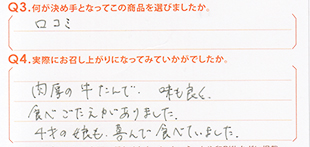 Q3.何が決め手となってこの商品を選びましたか。
口コミ
Q4.実際にお召し上がりになってみていかがでしたか。
肉厚の牛たんで、味も良く、
食べごたえがありました。
4才の娘も、喜んで食べていました。